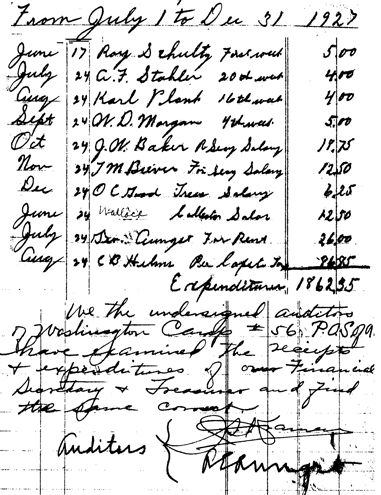 From July 1 to Dec 31 1927
June 17 Roy Schultz First west 5.00
July 24 A. F. Stahler 20th west 4.00
Aug 24 Karl Plank 16th west 4.00
Sept 24 W. D. Morgan 4th west 5.00
Oct 24 J. W. Baker R Secy Salary 18.75
Nov 24 T M Biever Fin Secy Salary 12.50
Dec 24 O C Good Treas Salary 6.25
June 24 Wallace Collector Salar 12.50
July 24 Aungst For Rent 26.00
Aug 24 C B Helms Per Capita Tax 86.85
Expenditures 1862.35
We the undersigned auditors
of Washington Camp # 56. P.O.S. of A.
have examined the receipts
& expenditures of our Financial
Secretary & Treasurer and find
the same correct
Auditors